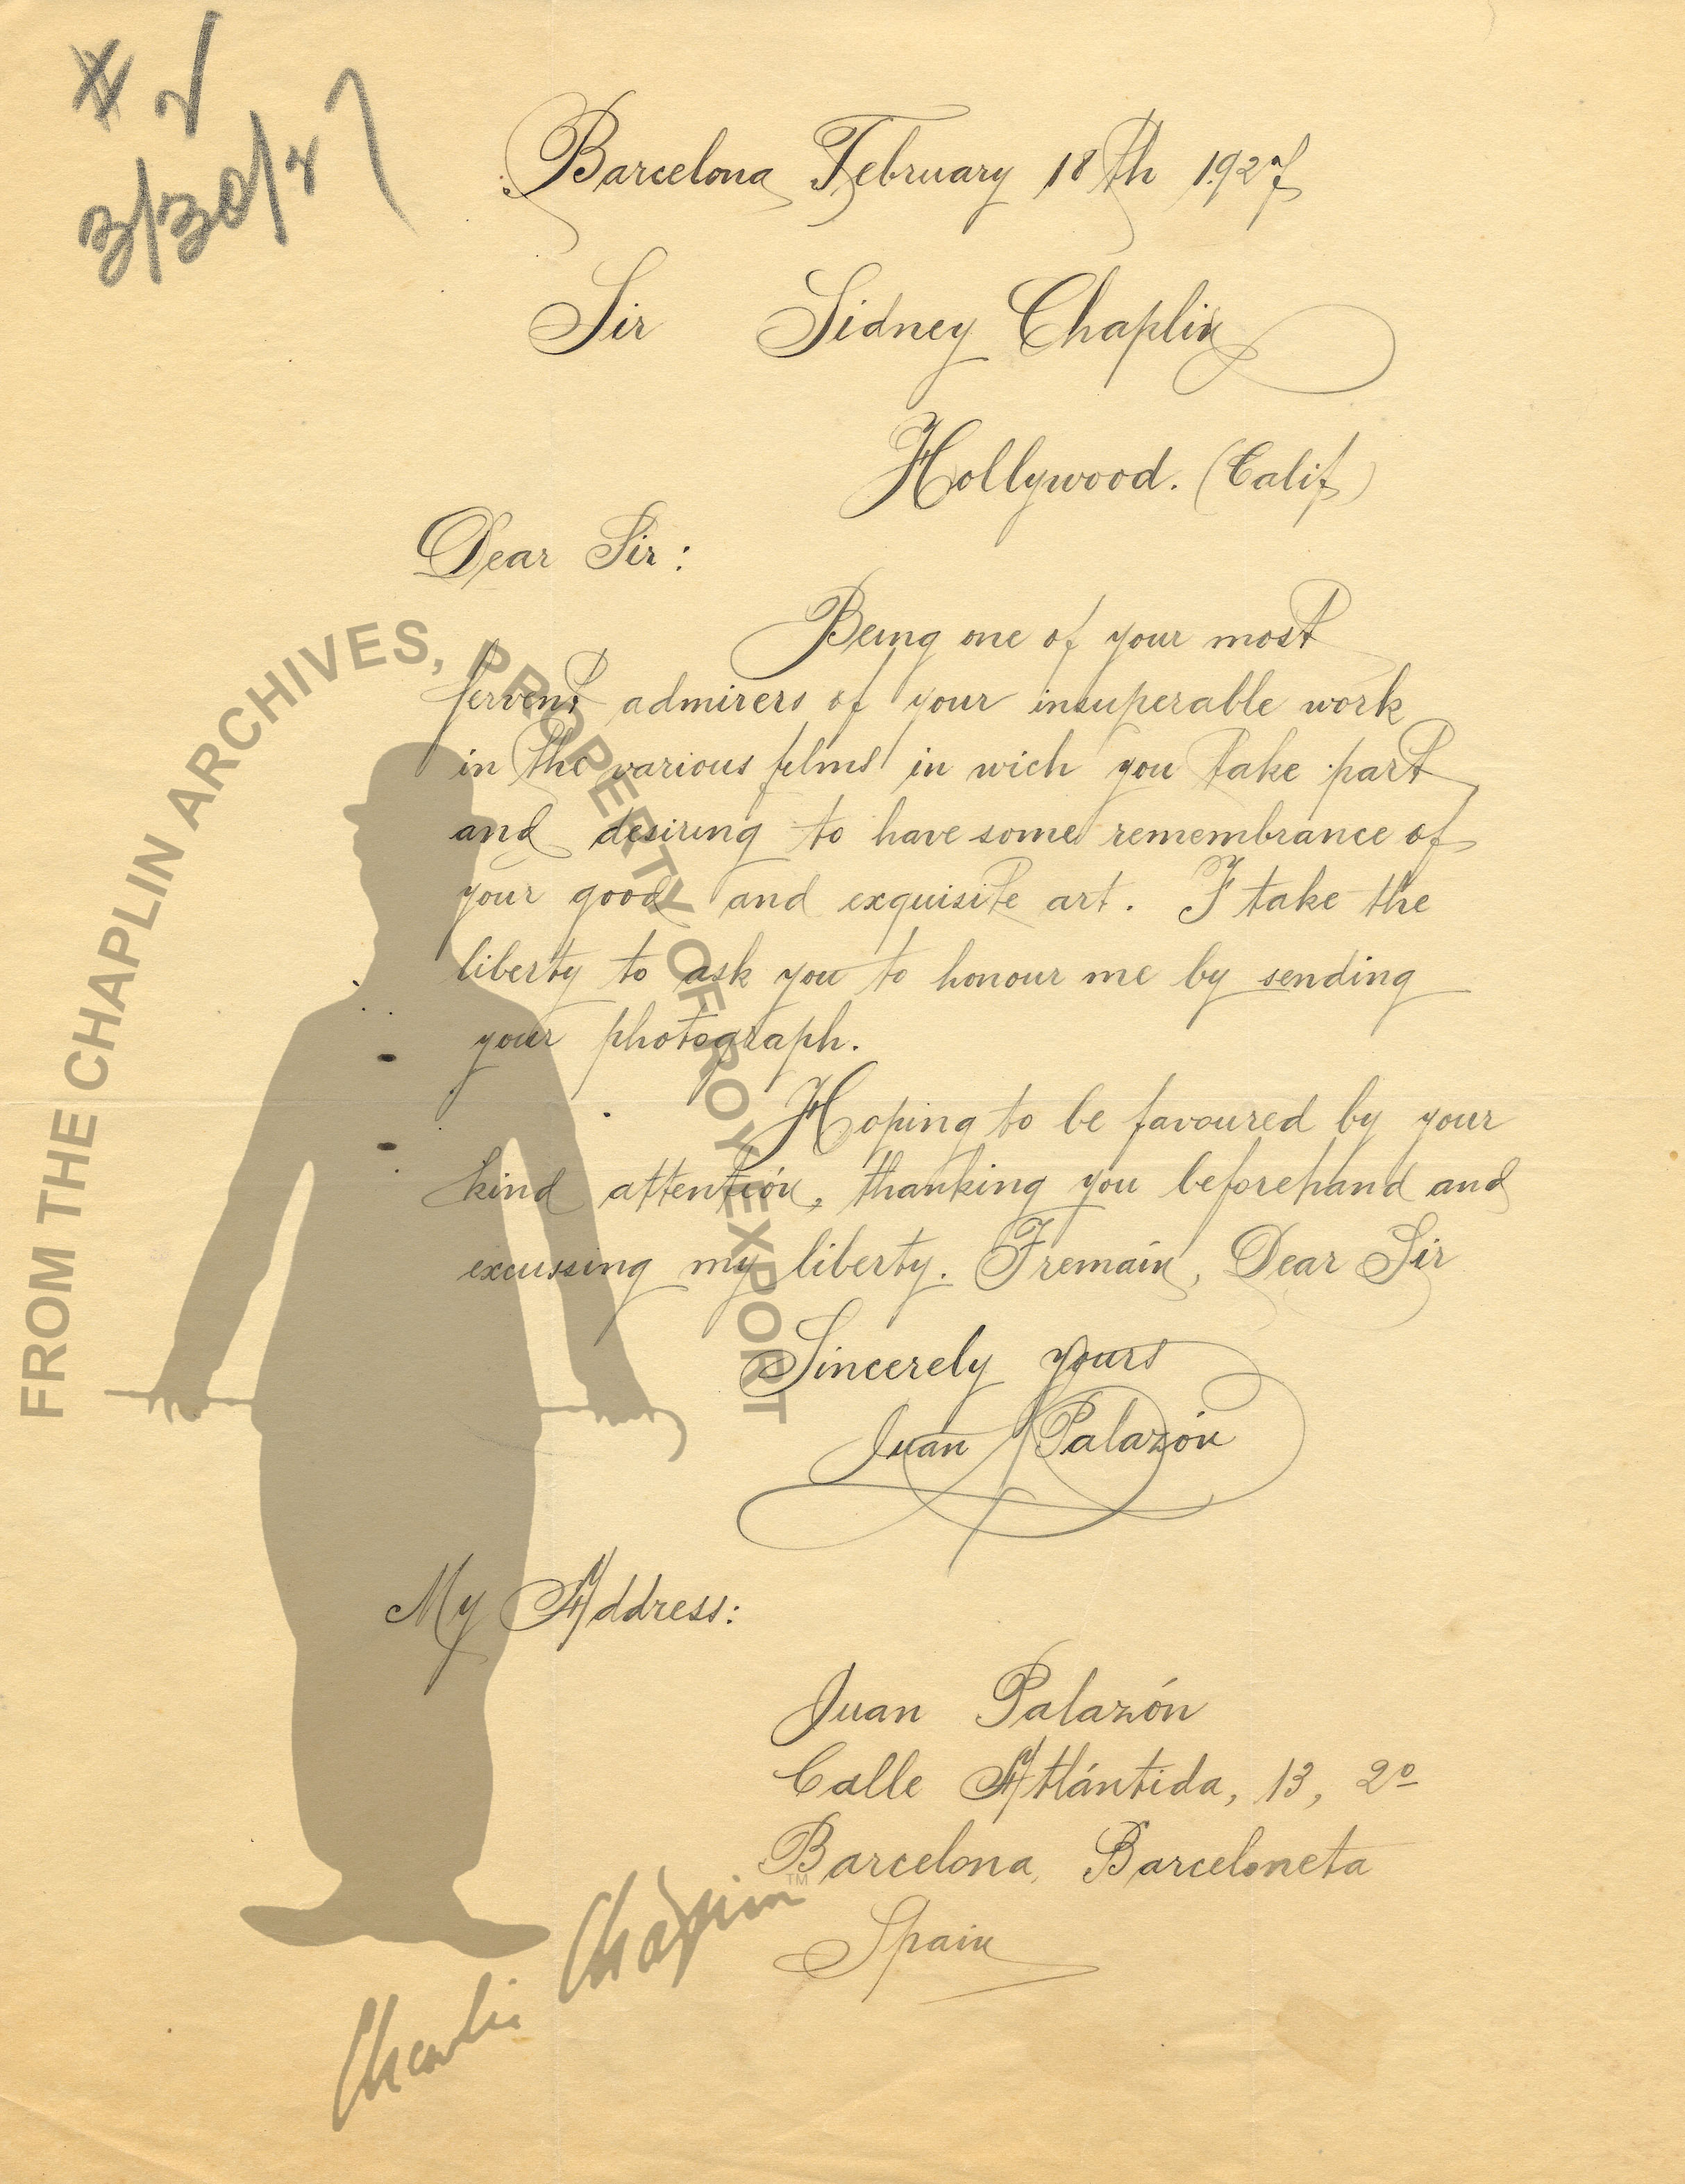 3/30/27
Barcelona February 18th 1.927
Sir Sidney Chaplin
Hollywood. (Calif)
Dear Sir:
Being one of your most
fervent admirers of your insuperable work
in the various films in wich you take part
and desiring to have some remembrance of
your good and exquisite art. I take the
liberty to ask you to honour me by sending
your photograph.
Hoping to be favoured by your
kind attentión, thanking you beforehand and
excussing my liberty. I remain, Dear Sir
Sincerely yours
Juan Palazón
My Address:
Juan Palazón
Calle Atlántida, 13, 2º
Barcelona, Barceloneta
Spain
FROM THE CHAPLIN ARCHIVES, PROPERTY OF ROY EXPORT
Charlie Chaplin ™